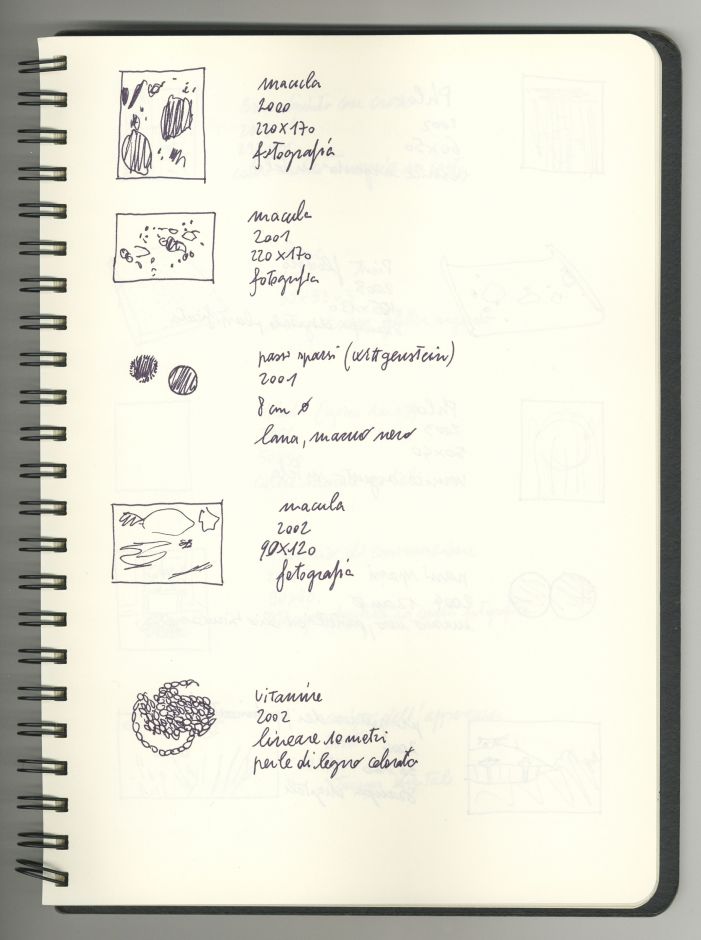 macula
2000
220x170
fotografia
macula
2001
220x170
fotografia
passi sparsi (wittgenstein)
2001
8 cm ø
lana, marmo nero
macula
2002
90x120
fotografia
vitamine
2002
lineare 10 metri
perle di legno colorato